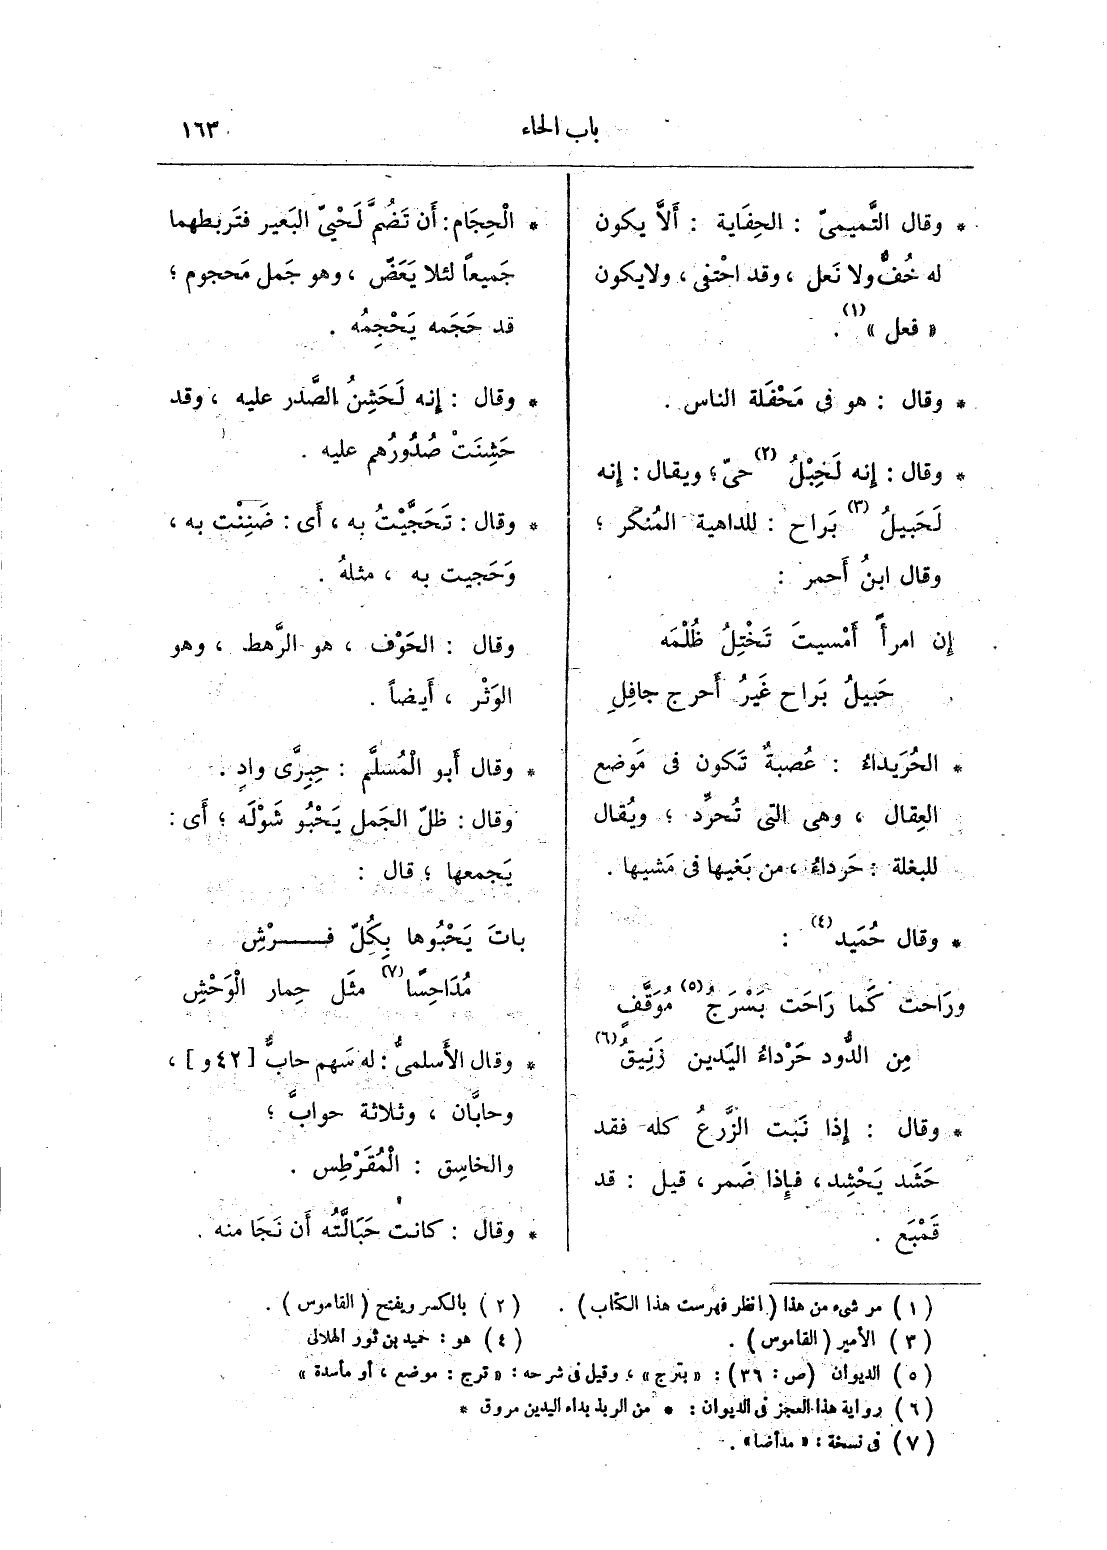 باب الحاء
١٦٣
* وقال التَّميمىّ : الحِفَاية : أَلاَّ يكون
له خُفٌّ ولا نَعل ، وقد احْتفى ، ولايكون
« فعل »(١) .
* وقال : هو فى مَحْفَلة الناس .
* وقال : إنه لَحَِبْلُ(٢) حىّ ؛ ويقال : إنه
لَحَبيلُ(٣) بَراح : للداهية المُنكَر ؛
وقال ابنُ أَحمر :
إن امرأً أَمْسيتَ تَخْتِلُ ظُلْمَه
حَبيلُ بَراح غَيرُ أَحرج جافِلِ
* الحُرَيداءُ : عُصبةٌ تَكون فى مَوضع
العِقال ، وهى التى تُحرَّد ؛ ويُقال
للبغلة : حَرداءُ ، من بَغيها فى مَشيها .
* وقال حُمَيد(٤) :
ورَاحت كَما رَاحَت بَسْرَجُ(٥) مُوَقَّفٍ
مِن الدُّود حَرْداءُ اليَدين زَنِيقُ(٦)
* وقال : إِذا نَبَت الزَّرعُ كله فقد
حَشَد يَحْشِد ، فإِذا ضَمر ، قيل : قد
قَمْبَع .
* الْحِجَام : أَن تَضُمّ لَحْيىّ البَعير فتَربطهما
جَميعاً لئلا يَعَضّ ، وهو جَمل مَحجوم ؛
قد حَجَمه يَحْجِمُه .
* وقال : إِنه لَحَشِنُ الصَّدر عليه ، وقد
حَشِنَتْ صُدُورُهم عليه .
* وقال : تَحَجَّيْتُ به ، أَى : ضَنِنْت به ،
وَحَجيت به ، مثلهُ .
وقال : الحَوْف ، هو الرَّهط ، وهو
الوَثْر ، أَيضاً .
* وقال أَبو الْمُسلَّم : حِبِرَّى وادٍ .
وقال : ظلّ الجَمل يَحْبُو شَوْلَه ؛ أَى :
يَجمعها ؛ قال :
باتَ يَحْبُوها بِكُلّ فَــرْشِ
مُدَاحِسًّا(٧) مثَل حِمار الْوَحْشِ
* وقال الأَسلمىُّ : له سَهم حابٌّ [ ٤٢ و ] ،
وحابَّان ، وثلاثة حوابٌّ ؛
والخاسِق : الْمُقَرْطِس .
* وقال : كانت حَبَالَّتُه أَن نَجَا منه .
(١) مر شىء من هذا (انظر فهرست هذا الكتاب) .
(٢) بالكسر ويفتح (القاموس) .
(٣) الأمير (القاموس) .
(٤) هو : حميد بن ثور الهلالى
(٥) الديوان (ص : ٣٦) : « بترج » ، وقيل فى شرحه : « ترج : موضع ، أو مأسدة »
(٦) رواية هذا العجز فى الديوان : * من الربذ بداء اليدين مروق *
(٧) فى نسخة : « مدأضا » .